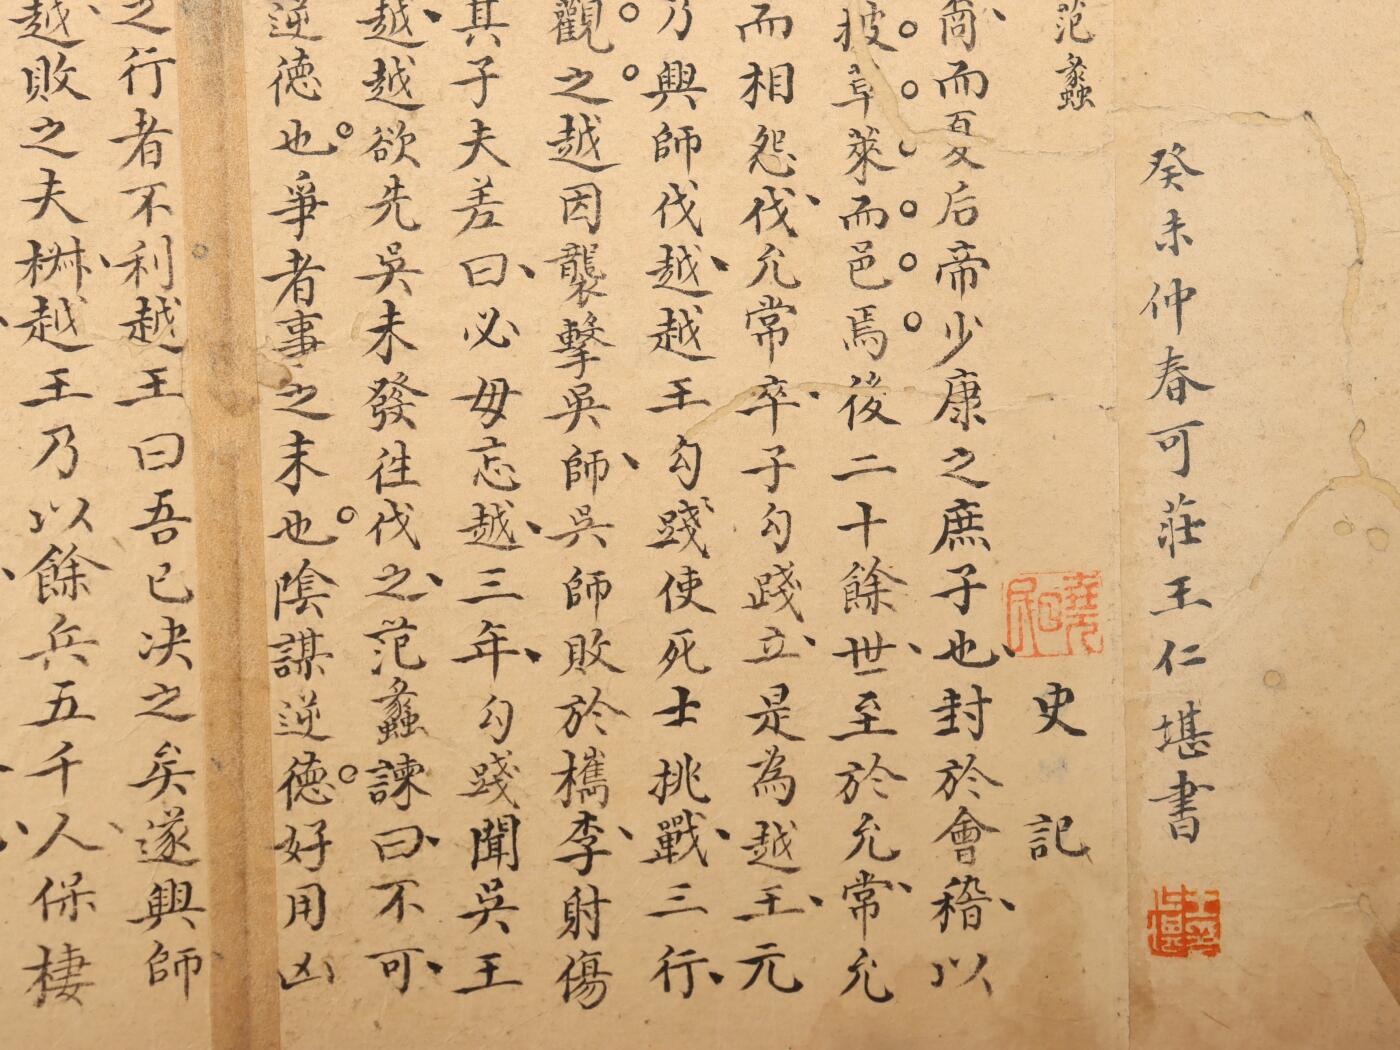 癸未仲春可莊王仁堪書
范蠡
史記
啇而夏后帝少康之庶子也封於會稽以
披草萊而邑焉後二十餘世至於允常允
而相怨伐允常卒子勾踐立是為越王元
乃興師伐越越王勾踐使死士挑戰三行
觀之越因襲擊吳師吳師敗於檇李射傷
其子夫差曰必毋忘越三年勾踐聞吳王
越越欲先吳未發往伐之范蠡諫曰不可
逆德也爭者事之末也陰謀逆德好用凶
之行者不利越王曰吾已決之矣遂興師
越敗之夫椒越王乃以餘兵五千人保棲